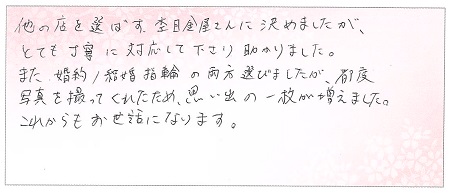 他の店を選ばず、杢目金屋さんに決めましたが、
とても丁寧に対応して下さり助かりました。
また婚約/結婚指輪の両方選びましたが、都度
写真を撮ってくれたため、思い出の一枚が増えました。
これからもお世話になります。